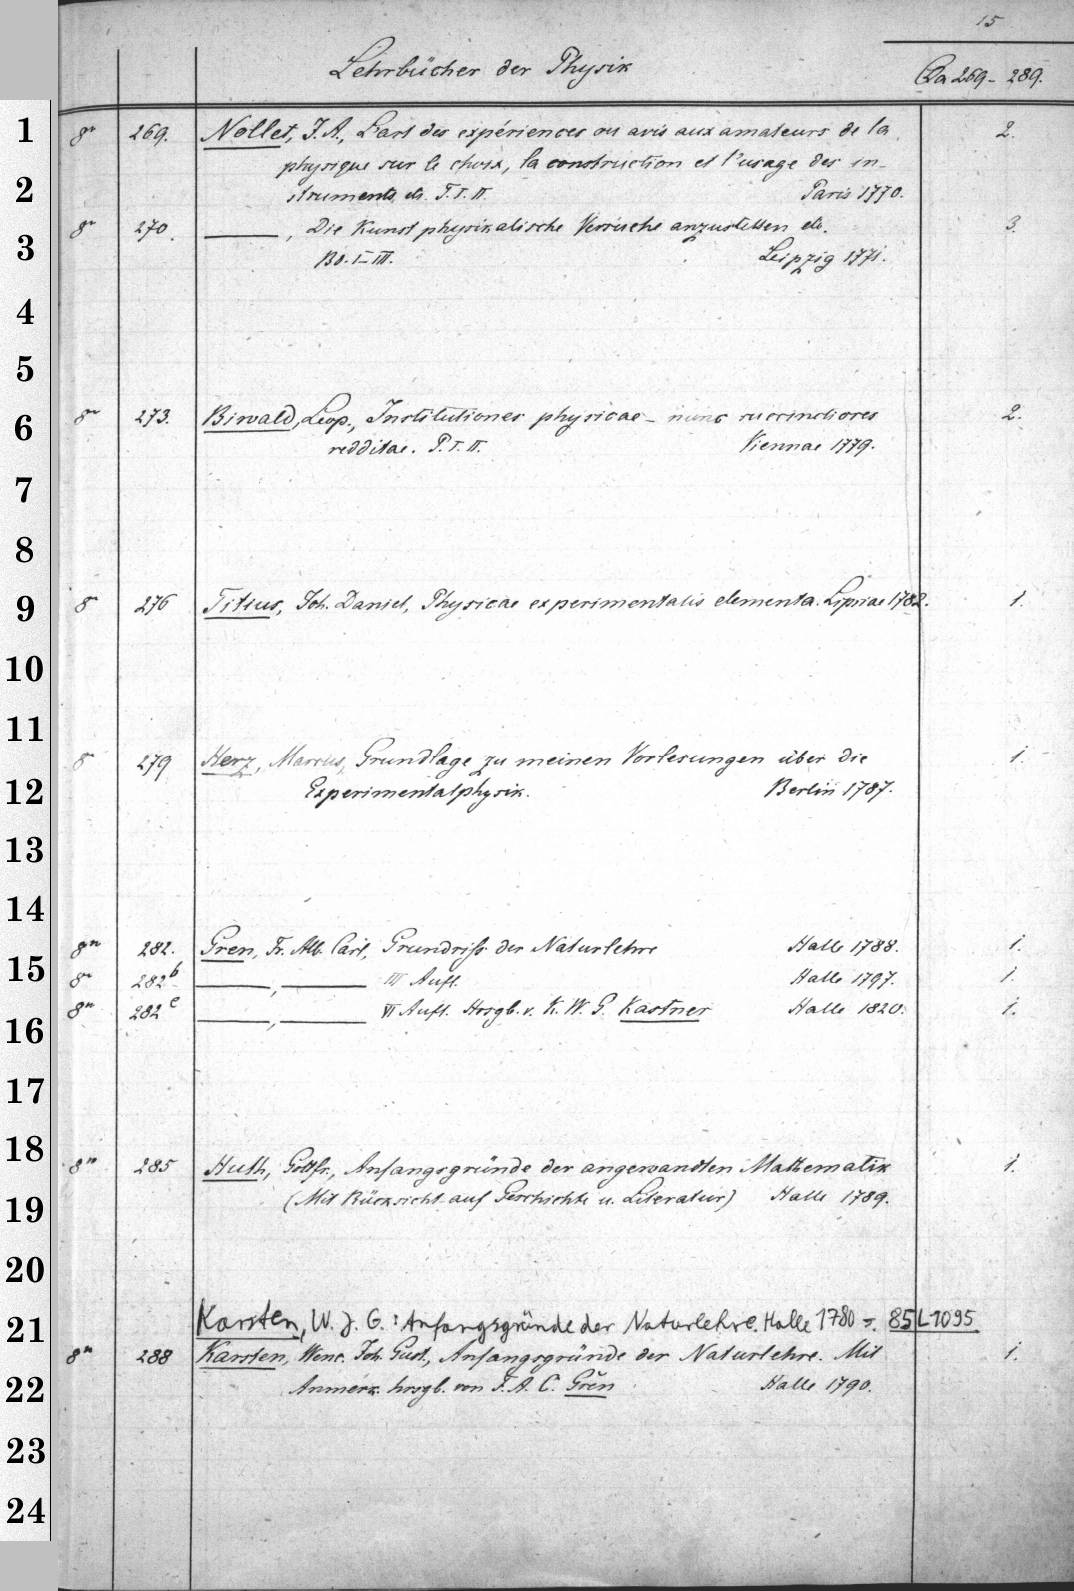 15
Lehrbücher der Physik
Qa 269-289.
1
8° 269. Nollet, J. A., L'art des expériences ou avis aux amateurs de la 2.
physique sur le choix, la construction et l'usage des in-
2
struments etc. T. I. II. Paris 1770.
3
8° 270. ——, Die Kunst physikalische Versuche anzustellen etc. 3.
Bd. I-III. Leipzig 1771.
4
5
6
8° 273. Biwald, Leop., Institutiones physicae - nunc succinctiores 2.
redditae. P. I. II. Viennae 1779.
7
8
9
8° 276 Titius, Joh. Daniel, Physicae experimentalis elementa. Lipsiae 1782. 1.
10
11
8° 279 Herz, Marcus, Grundlage zu meinen Vorlesungen über die 1.
12
Experimentalphysik. Berlin 1787.
13
14
8° 282. Gren, Fr. Alb. Carl, Grundriss der Naturlehre Halle 1788. 1.
15
8° 282b ——, —— III Aufl. Halle 1797. 1.
16
8° 282c ——, —— VI Aufl. Hrsgb. v. K. W. G. Kastner Halle 1820. 1.
17
18
8° 285 Huth, Gottfr., Anfangsgründe der angewandten Mathematik 1.
19
(Mit Rücksicht auf Geschichte u. Literatur) Halle 1789.
20
21
Karsten, W. J. G.: Anfangsgründe der Naturlehre. Halle 1780 =. 85 L 1095
8° 288 Karsten, Wenc. Joh. Gust., Anfangsgründe der Naturlehre. Mit 1.
22
Anmerk. hrsgb. von F. A. C. Gren Halle 1790.
23
24